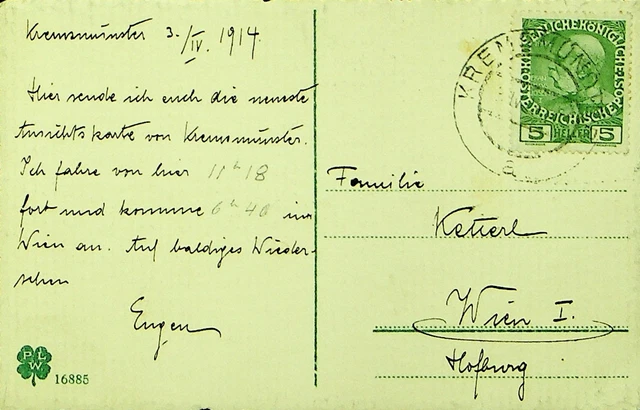 Kremsmünster 3./IV. 1914.
Hier sende ich euch die neueste
Ansichtskarte von Kremsmünster.
Ich fahre von hier 11h 18
fort und komme 6h 40 in
Wien an. Auf baldiges Wieder-
sehen
Eugen
PLW
16885
KREMSMÜNSTER
a
KAISERLICHE KÖNIGLICHE
ÖSTERREICHISCHE POST
5 HELLER 5
Familie
Ketterl
Wien I.
Hofburg